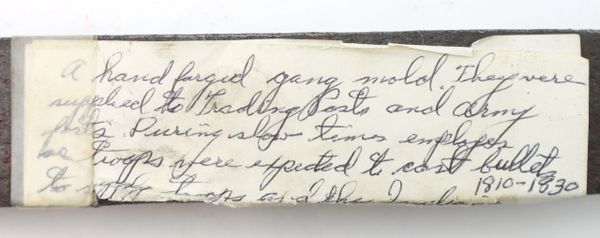 A hand forged gang mold. They were
supplied to Trading Posts and Army
forts. During slow times employes
or Troops were expected to cast bullets
to troops and the
1810-1830